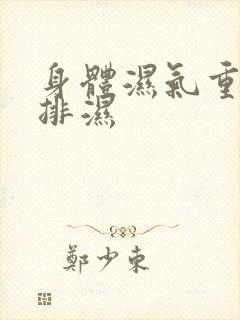 身體濕氣重
排濕
鄭少東